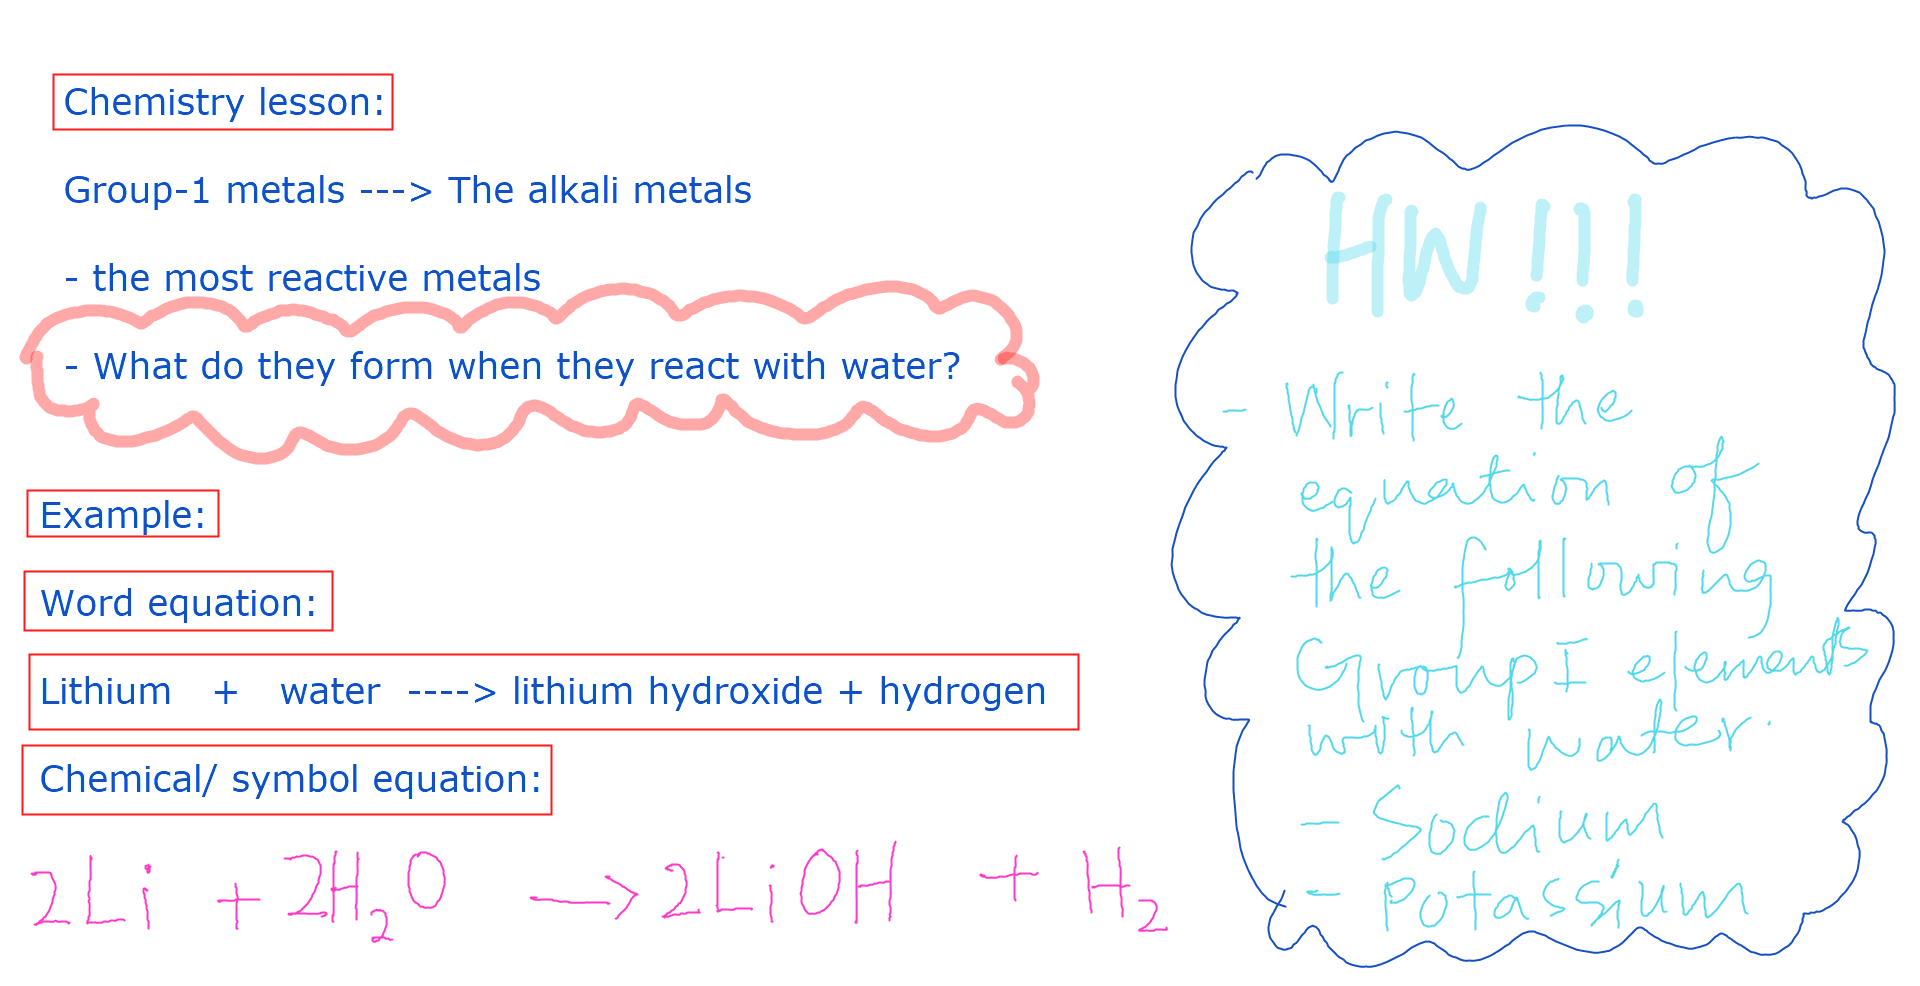 Chemistry lesson:
Group-1 metals ---> The alkali metals
- the most reactive metals
- What do they form when they react with water?
Example:
Word equation:
Lithium + water ----> lithium hydroxide + hydrogen
Chemical/ symbol equation:
2Li + 2H₂O → 2LiOH + H₂
HW!!!
- Write the
equation of
the following
Group I elements
with water.
- Sodium
- Potassium